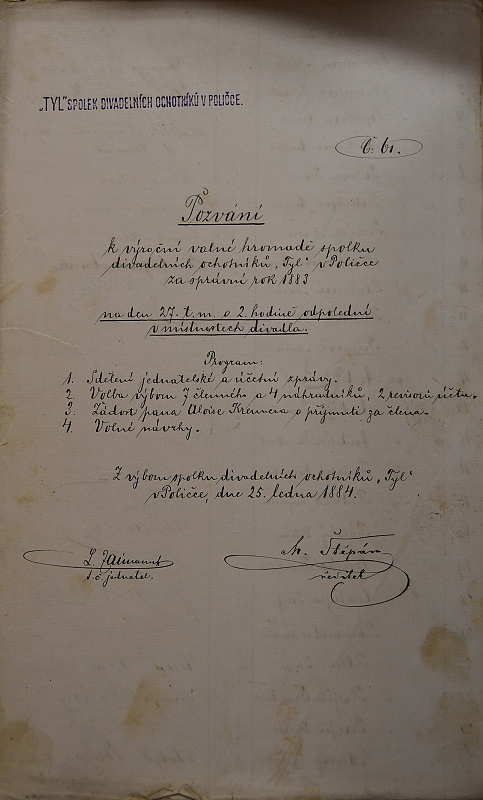 „TYL" SPOLEK DIVADELNÍCH OCHOTNÍKŮ V POLIČCE.
Č. 61.
Pozvání
k výroční valné hromadě spolku
divadelních ochotníků „Tyl" v Poličce
za správní rok 1883
na den 27. t. m. o 2. hodině odpolední
v místnostech divadla.
Program:
1. Sdělení jednatelské a účetní zprávy.
2. Volba výboru 7 členného a 4 náhradníků, 2 revisorů účtu.
3. Žádost pana Aloise Kremera o přijmutí za člena.
4. Volné návrhy.
Z výboru spolku divadelních ochotníků „Tyl"
v Poličce, dne 25. ledna 1884.
M. Štěpán
t. č. jednatel.
ředitel